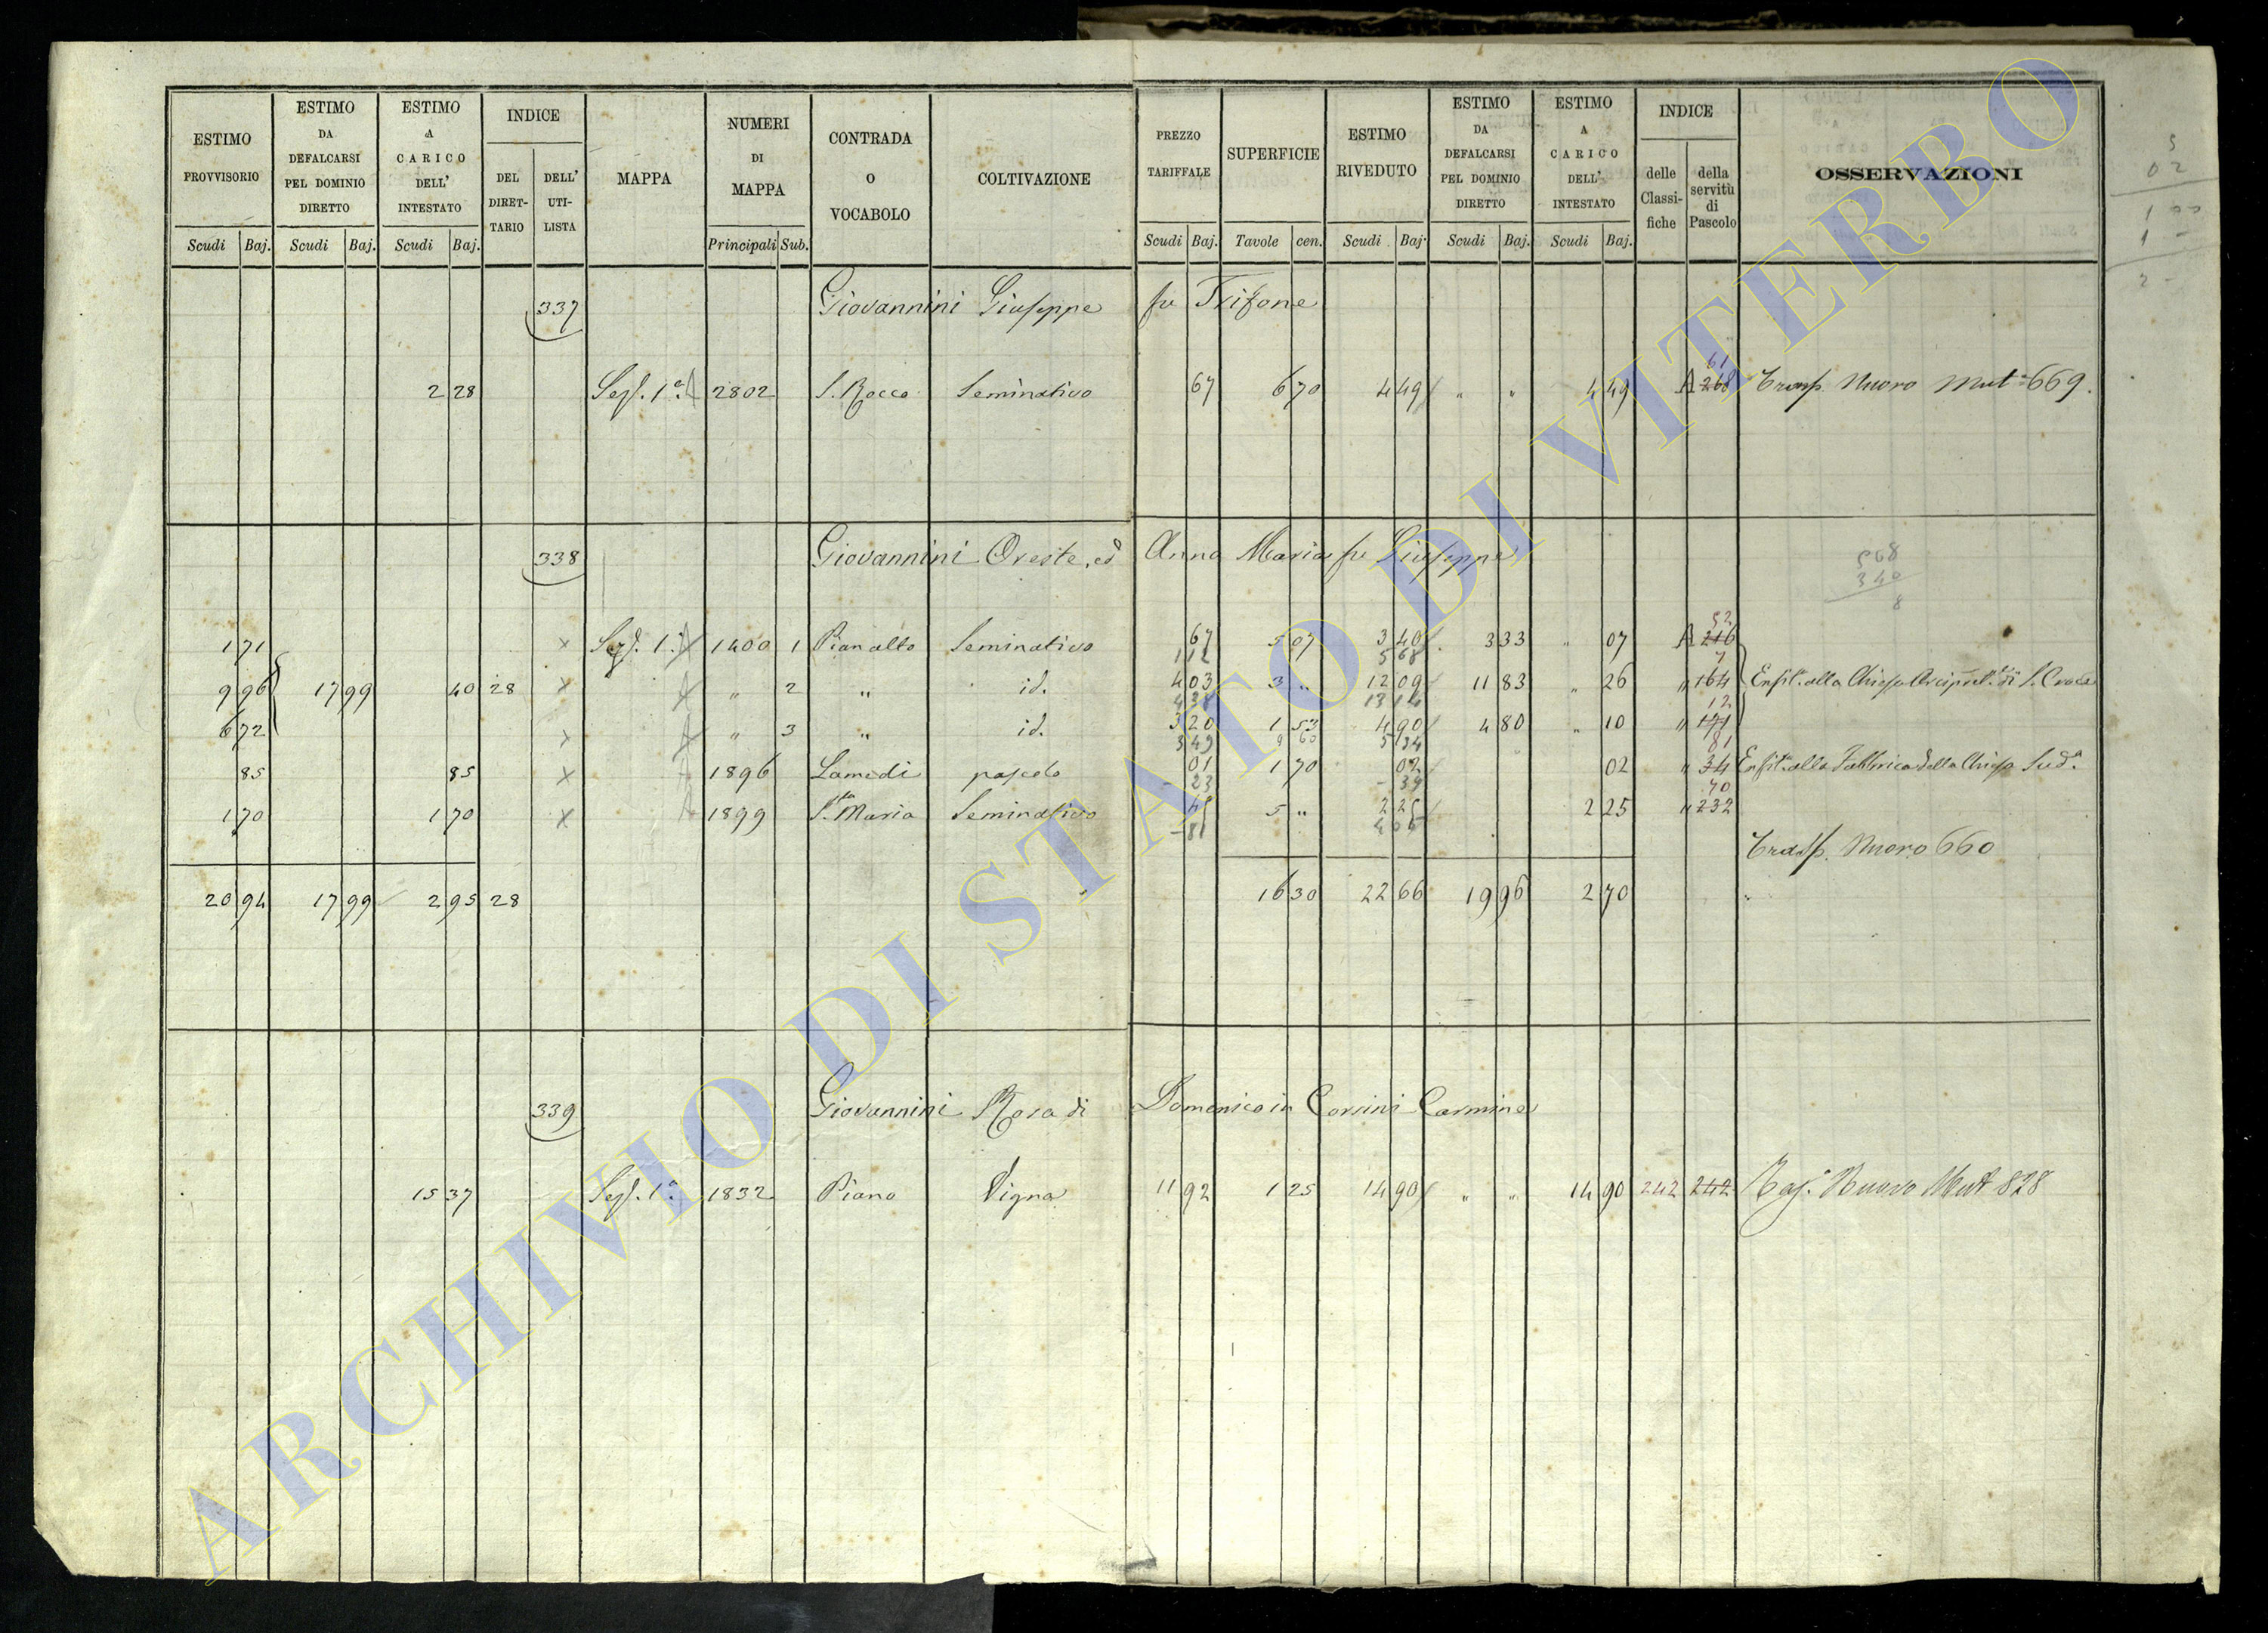 ESTIMO PROVVISORIO | ESTIMO DA DEFALCARSI PEL DOMINIO DIRETTO | ESTIMO A CARICO DELL' INTESTATO | INDICE | MAPPA | NUMERI DI MAPPA | CONTRADA O VOCABOLO | COLTIVAZIONE | PREZZO TARIFFALE | SUPERFICIE | ESTIMO RIVEDUTO | ESTIMO DA DEFALCARSI PEL DOMINIO DIRETTO | ESTIMO A CARICO DELL' INTESTATO | INDICE | OSSERVAZIONI
DEL DIRET-TARIO | DELL' UTI-LISTA | delle Classi-fiche | della servitù di Pascolo
Scudi | Baj. | Scudi | Baj. | Scudi | Baj. | Principali | Sub. | Scudi | Baj. | Tavole | cen. | Scudi | Baj. | Scudi | Baj. | Scudi | Baj.
337 Giovannini Giuseppe fu Trifone
61
2 28 Sez. 1a 2802 S. Rocco Seminativo 67 6 70 4 49 " " 4 49 A 268 Trasp. Nuovo Mut. 669.
338 Giovannini Oreste, ed Anna Maria fu Giuseppe
568
340
8
52
1 71 x Sez. 1a 1400 1 Pian alto Seminativo 67 5 07 3 40 3 33 " 07 A 216
1 12 5 68 7
9 96 17 99 40 28 x " 2 " id. 4 03 3 " 12 09 11 83 " 26 " 164 Enfit. alla Chiesa Arcipret. di S. Croce
4 38 13 14 12
6 72 x " 3 " id. 3 20 1 53 4 90 4 80 " 10 " 171
3 49 5 34 81
85 85 x 1896 Lamedi pascolo 01 1 70 02 02 " 34 Enfit. alla Fabbrica della Chiesa Sud.a
23 - 39 70
1 70 1 70 x 1899 S.ta Maria Seminativo 45 5 " 2 25 2 25 " 232
- 81 4 05
Trasp. Nuovo 660
20 94 17 99 2 95 28 16 30 22 66 19 96 2 70
339 Giovannini Rosa di Domenico in Corsini Carmine
15 37 Sez. 1a 1832 Piano Vigna 11 92 1 25 14 90 " " 14 90 242 242 Nuovo Mut 828
ARCHIVIO DI STATO DI VITERBO